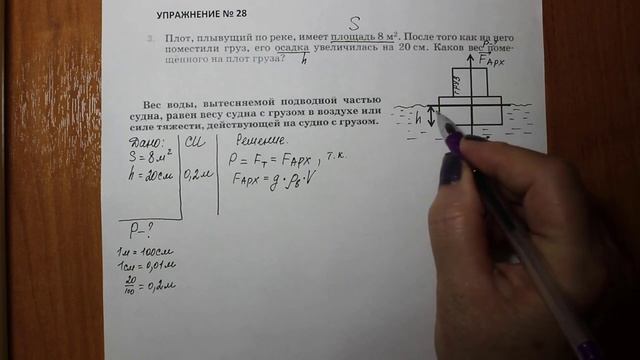 УПРАЖНЕНИЕ № 28
S
3. Плот, плывущий по реке, имеет площадь 8 м². После того как на него
поместили груз, его осадка увеличилась на 20 см. Каков вес поме-
щённого на плот груза?
h
Fарх
груз
h
Вес воды, вытесняемой подводной частью
судна, равен весу судна с грузом в воздухе или
силе тяжести, действующей на судно с грузом.
Дано: СИ Решение.
S = 8 м² P = Fт = Fарх, т.к.
h = 20 см 0,2 м Fарх = g · ρв · V
P - ?
1м = 100см
1см = 0,01м
20/100 = 0,2 м